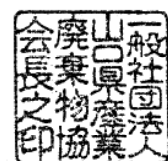 一般社団法人
山口県産業
廃棄物協
会長之印